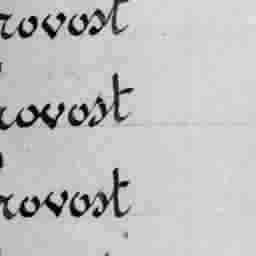 rovost
rovost
rovost